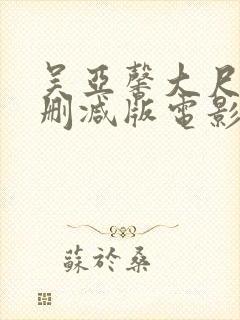 吴亚馨大尺
删减版電影
蘇於桑